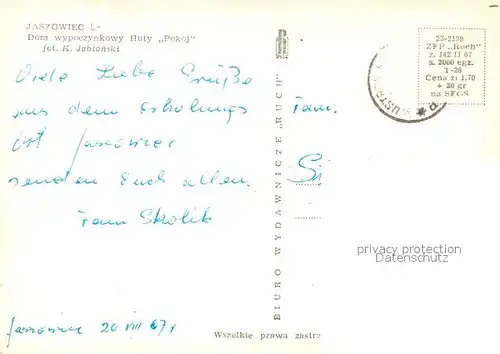 JASZOWIEC L-
Dom wypoczynkowy Huty „Pokój"
fot. K. Jabłoński
Viele Liebe Grüße
aus dem Erholungs
ort Jaszowiec
senden Euch allen.
Fam Skolik
Jaszowiec 20 VIII 67r
BIURO WYDAWNICZE „RUCH"
Wszelkie prawa zastrz
Fam.
USTR
23-2159
ZFP „Ruch"
z. 142 II 67
s. 2000 egz.
T-26
Cena zł 1,70
+ 20 gr
na SFOS
privacy protection
ANSICHTSKARTEN-CENTER.DE